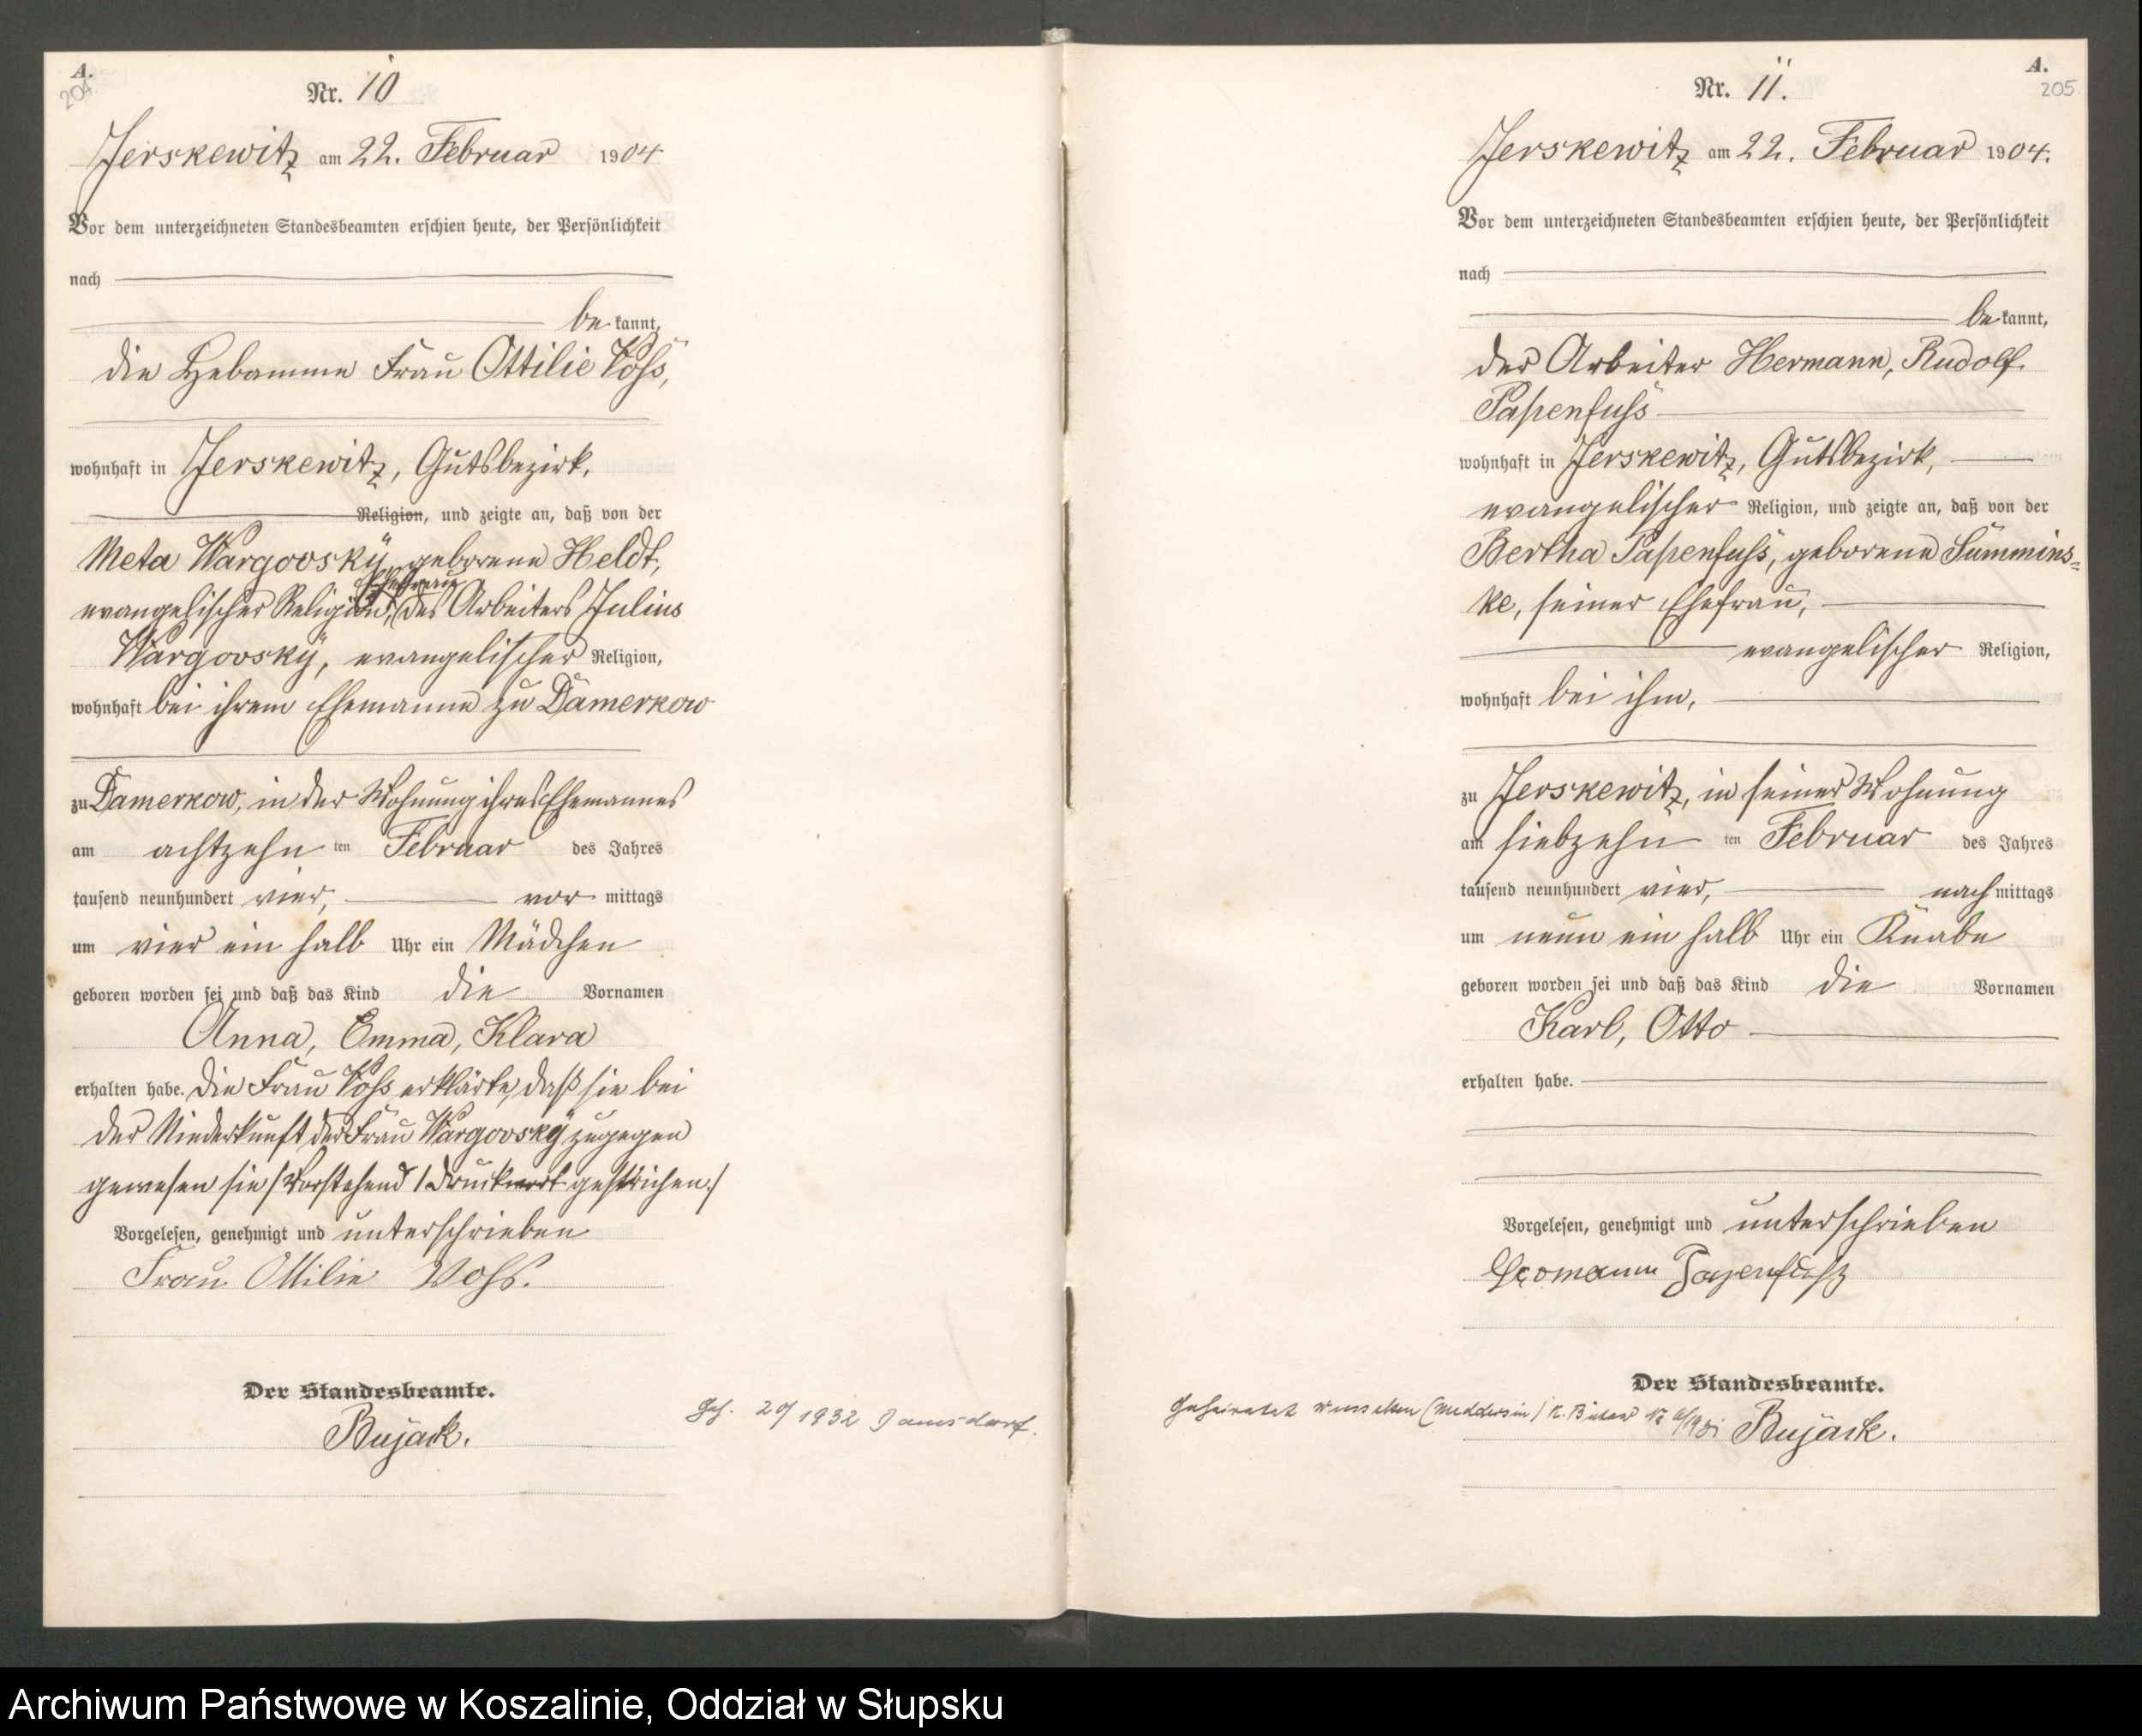 A.
204.
Nr. 10
Jerskewitz am 22. Februar 1904
Vor dem unterzeichneten Standesbeamten erschien heute, der Persönlichkeit
nach
be kannt,
die Hebamme Frau Ottilie Voss,
wohnhaft in Jerskewitz, Gutsbezirk,
Religion, und zeigte an, daß von der
Meta Wargovsky, geborene Heldt,
Ehefrau
evangelischer Religion, des Arbeiters Julius
Wargovsky, evangelischer Religion,
wohnhaft bei ihrem Ehemanne zu Damerkow
zu Damerkow, in der Wohnung ihres Ehemannes
am achtzehn ten Februar des Jahres
tausend neunhundert vier, vor mittags
um vier ein halb Uhr ein Mädchen
geboren worden sei und daß das Kind die Vornamen
Anna, Emma, Klara
erhalten habe. Die Frau Voss erklärte, daß sie bei
der Niederkunft der Frau Wargovsky zugegen
gewesen sie /Vorstehend 1 Druckwort gestrichen./
Vorgelesen, genehmigt und unterschrieben
Frau Ottilie Voss.
Der Standesbeamte.
Bujack.
Geh. 20/1932 Jamsdorf.
A.
205
Nr. 11.
Jerskewitz am 22. Februar 1904.
Vor dem unterzeichneten Standesbeamten erschien heute, der Persönlichkeit
nach
be kannt,
der Arbeiter Hermann, Rudolf
Papenfuss
wohnhaft in Jerskewitz, Gutsbezirk,
evangelischer Religion, und zeigte an, daß von der
Bertha Papenfuss, geborene Summins=
ke, seiner Ehefrau,
evangelischer Religion,
wohnhaft bei ihm,
zu Jerskewitz, in seiner Wohnung
am siebzehn ten Februar des Jahres
tausend neunhundert vier, nach mittags
um neun ein halb Uhr ein Knabe
geboren worden sei und daß das Kind die Vornamen
Karl, Otto
erhalten habe.
Vorgelesen, genehmigt und unterschrieben
Hermann Papenfuß
Der Standesbeamte.
Geheiratet Wusseken (Meddersin) K. Bütow Nr
Bujack.
Archiwum Państwowe w Koszalinie, Oddział w Słupsku